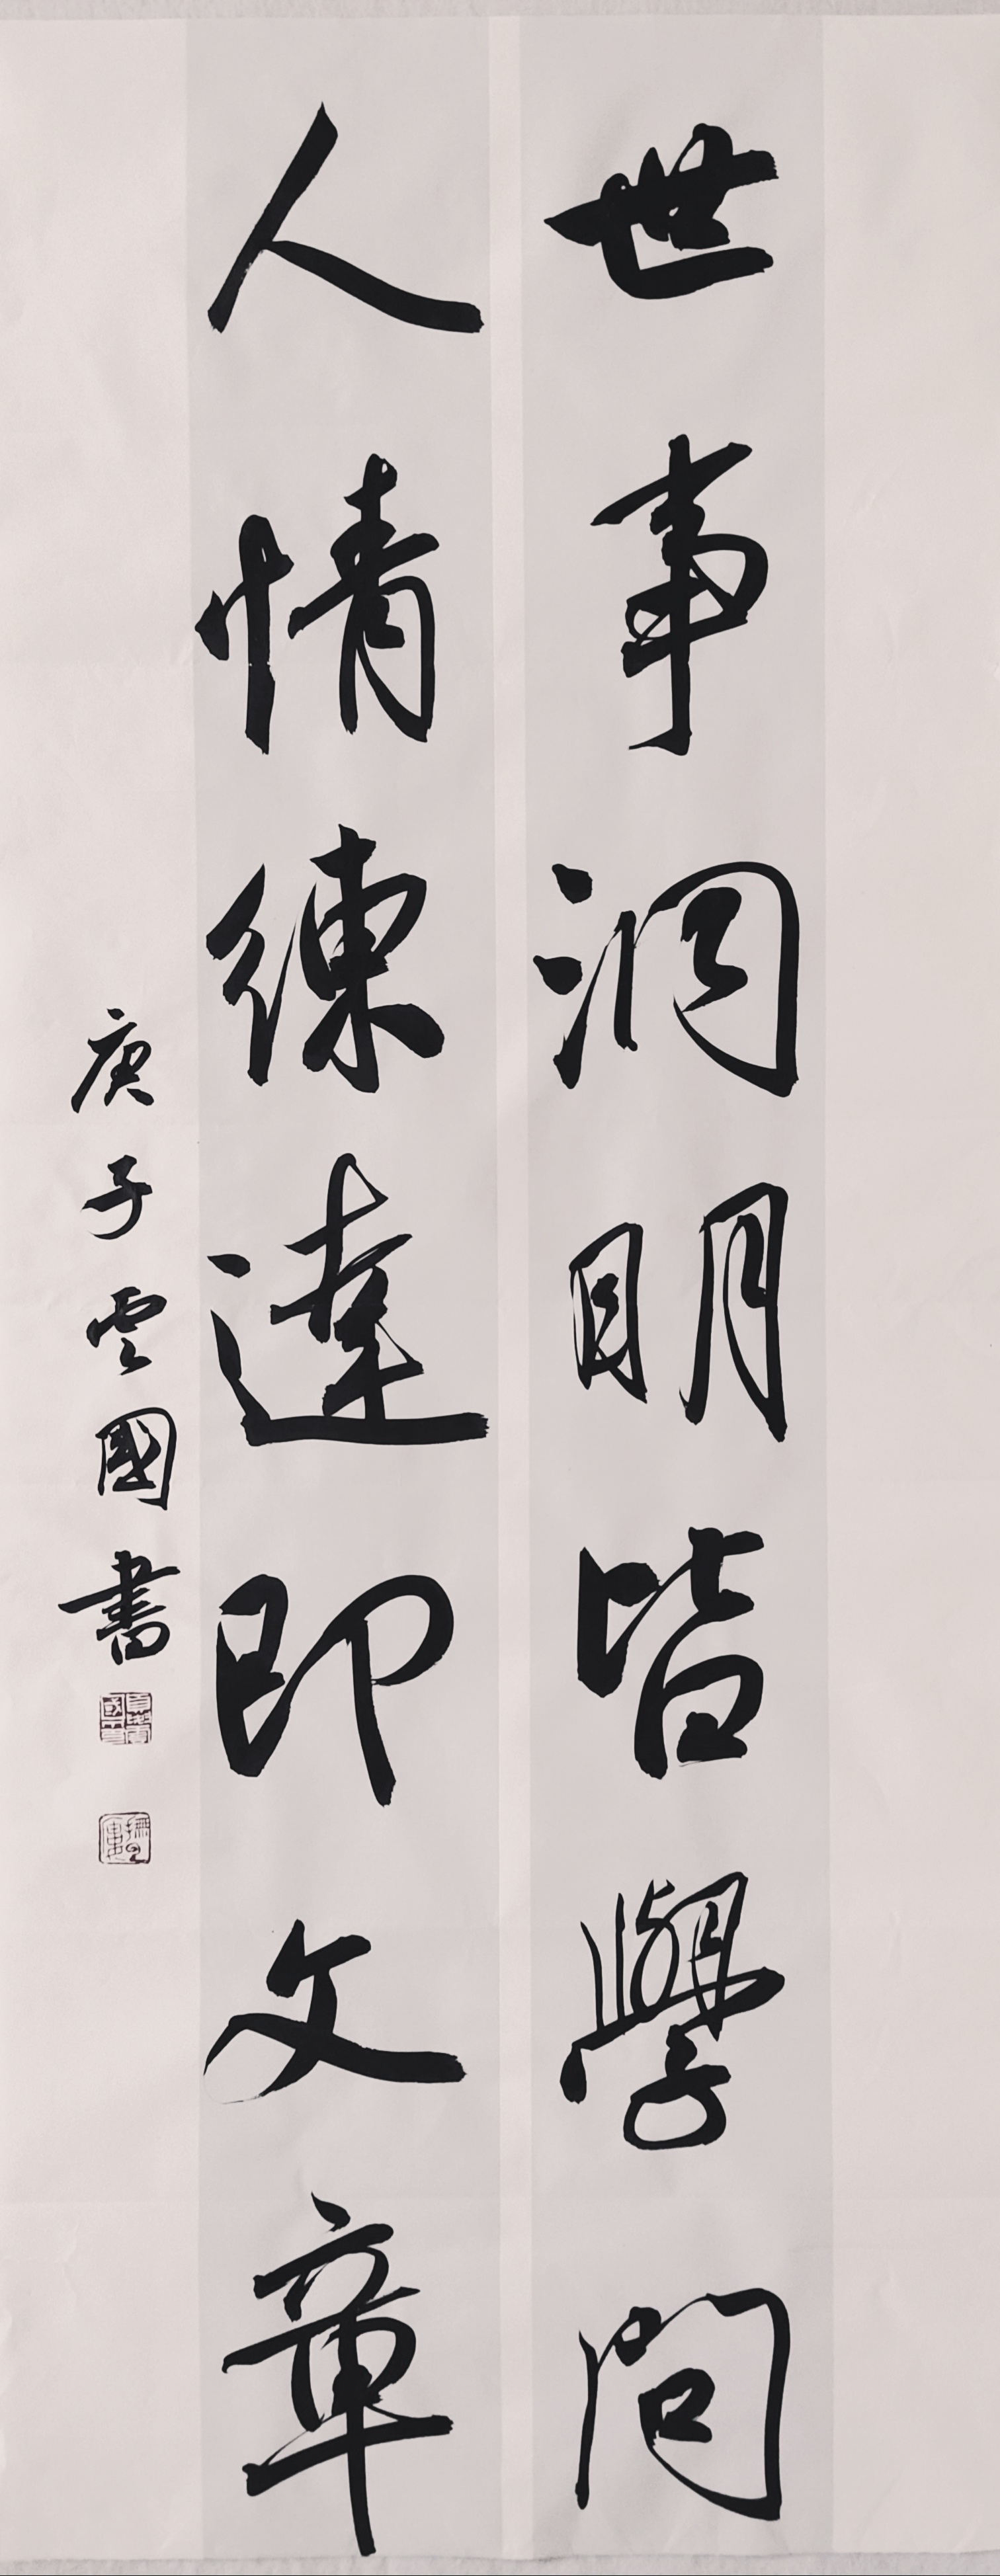 世事洞明皆學問
人情練達即文章
庚子雲國書